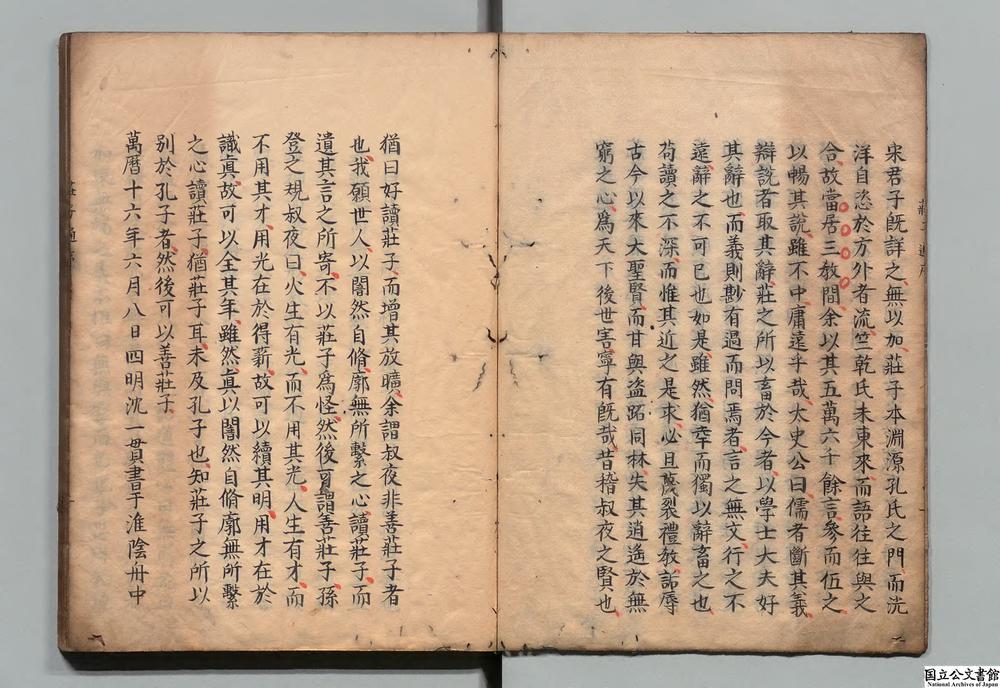 宋君子既詳之無以加莊子本淵源孔氏之門而洸
洋自恣於方外者流竺乾氏未東來而語往往與之
合故當居三教間余以其五萬六千餘言參而伍之
以暢其說雖不中庸遠乎哉太史公曰儒者斷其義
辯說者取其辭莊之所以畜於今者以學士大夫好
其辭也而義則尠有過而問焉者言之無文行之不
遠辭之不可已也如是雖然猶幸而獨以辭畜之也
苟讀之不深而惟其近之是求必且蔑裂禮教詬辱
古今以來大聖賢而甘與盗跖同林失其逍遙於無
窮之心為天下後世害寧有既哉昔嵇叔夜之賢也
猶曰好讀莊子而增其放曠余謂叔夜非善莊子者
也我願世人以闇然自脩廓無所繫之心讀莊子而
遺其言之所寄不以莊子為怪然後可謂善莊子孫
登之規叔夜曰火生有光而不用其光人生有才而
不用其才用光在於得薪故可以續其明用才在於
識真故可以全其年雖然真以闇然自脩廓無所繫
之心讀莊子猶莊子耳未及孔子也知莊子之所以
別於孔子者然後可以善莊子
萬曆十六年六月八日四明沈一貫書于淮陰舟中
国立公文書館
National Archives of Japan